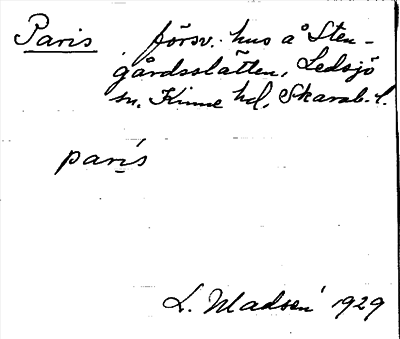 Paris försv. hus å Sten-
gårdsslätten, Ledsjö
sn. Kinne hd, Skarab. l.
parí̱s
L. Madsén 1929